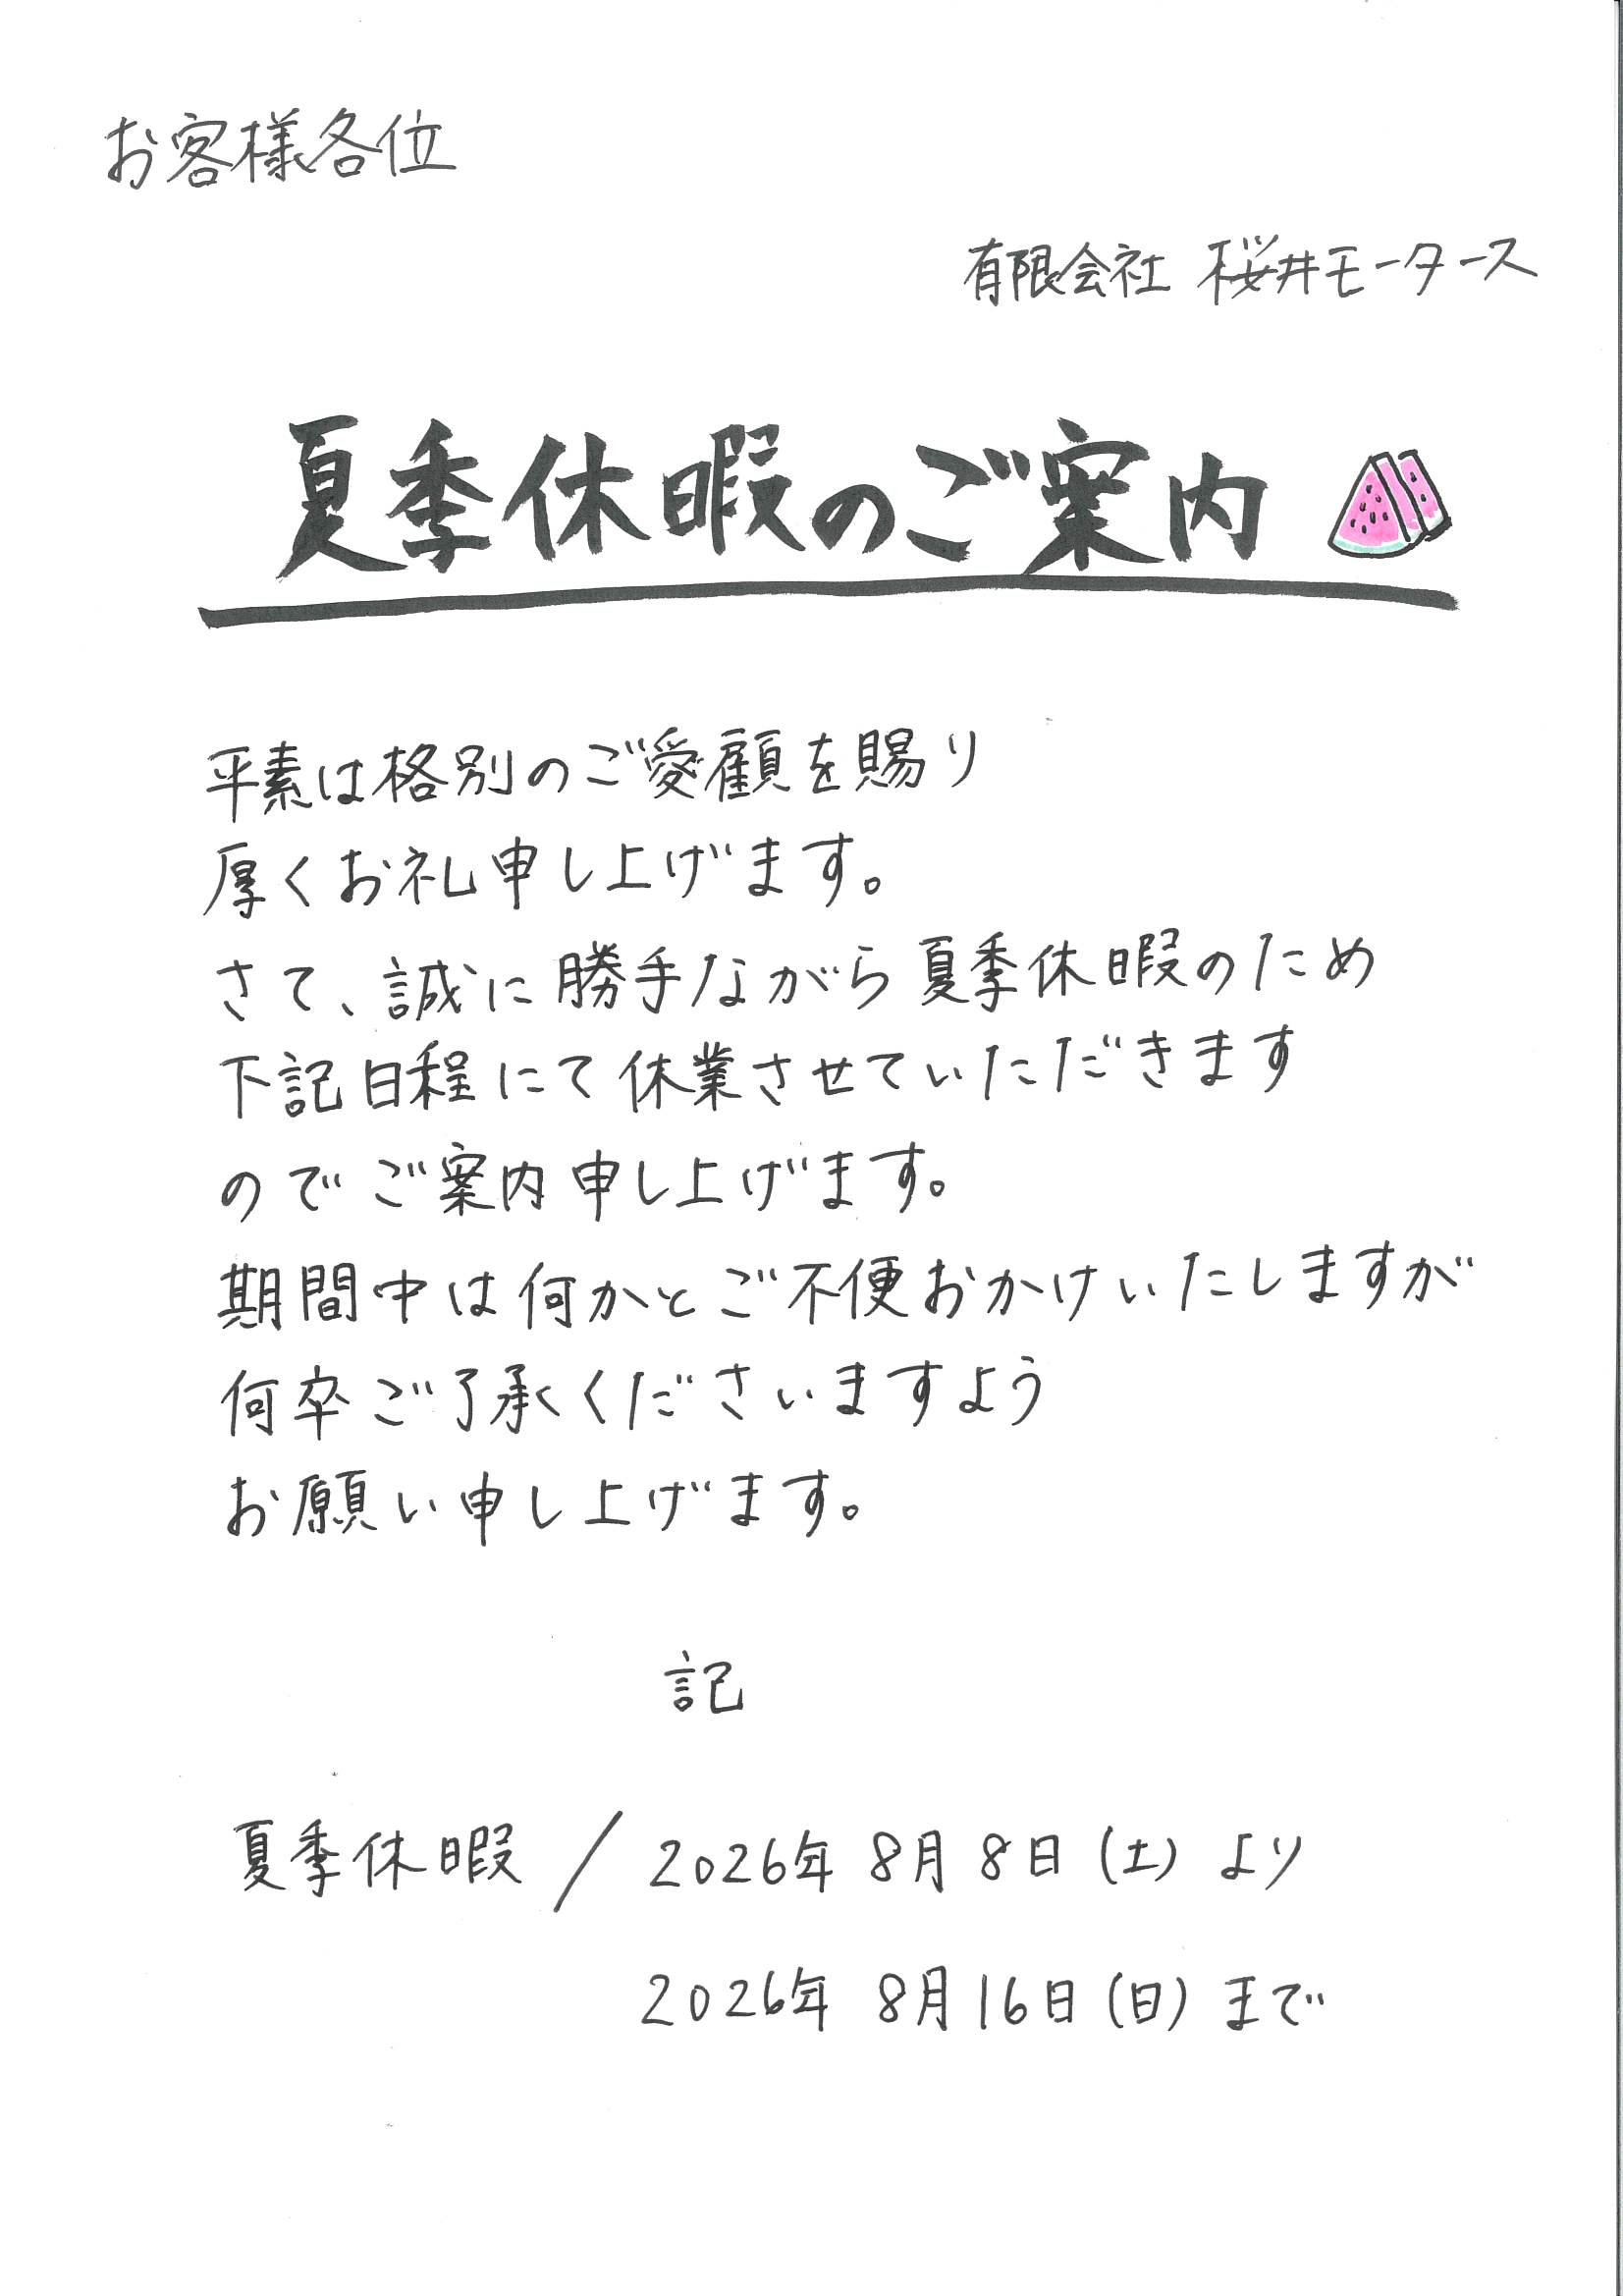 お客様各位
有限会社 桜井モータース
夏季休暇のご案内
平素は格別のご愛顧を賜り
厚くお礼申し上げます。
さて、誠に勝手ながら夏季休暇のため
下記日程にて休業させていただきます
のでご案内申し上げます。
期間中は何かとご不便おかけいたしますが
何卒ご了承くださいますよう
お願い申し上げます。
記
夏季休暇 / 2026年 8月 8日 (土) より
2026年 8月16日 (日) まで